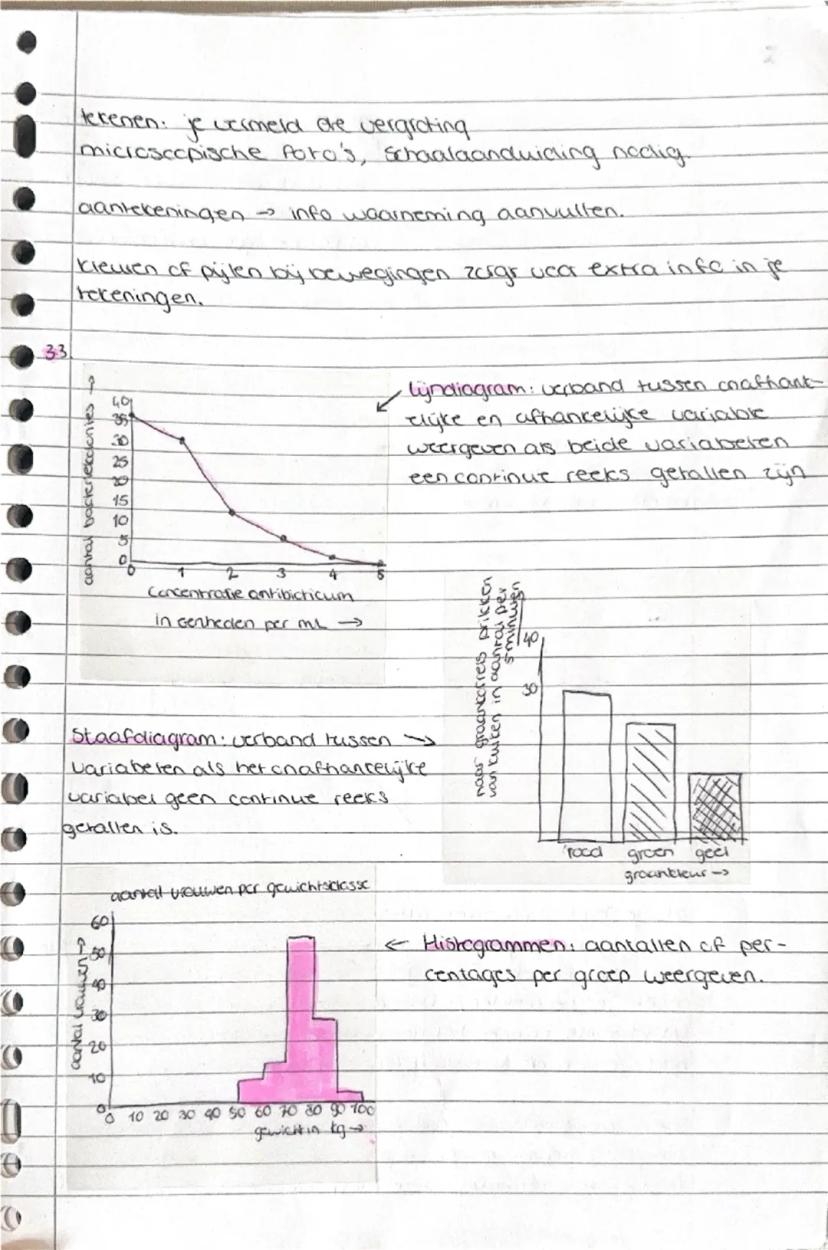 tekenen: je vermeld de vergroting
microscopische foto's, schaalaanduiding nodig.
aantekeningen → info waarneming aanvullen.
kleuren of pijlen bij bewegingen zorgt voor extra info in je
tekeningen.
3.3
aantal bacteriekolonies →
40
35
30
25
20
15
10
5
0
0 1 2 3 4 5
concentratie antibioticum
in eenheden per mL →
↙ Lijndiagram: verband tussen onafhank-
elijke en afhankelijke variable
weergeven als beide variabelen
een continue reeks getallen zijn
naar graankorrels prikken
van kuiken in aantal per
5 minuten
40
30
rood groen geel
graankleur →
Staafdiagram: verband tussen →
variabelen als het onafhankelijke
variabel geen continue reeks
getallen is.
aantal vrouwen per gewichtsklasse
aantal vrouwen →
60
50
40
30
20
10
0
0 10 20 30 40 50 60 70 80 90 100
gewicht in kg →
← Histogrammen: aantallen of per-
centages per groep weergeven.